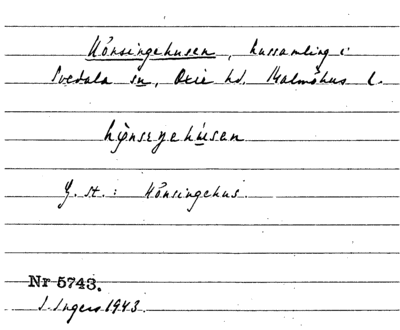 Hönsingehusen, hussamling i
Svedala sn, Oxie hd. Malmöhus l.
hǫ̈nsɪŋehúsen
G. st.: Hönsingehus.
Nr 5743.
I. Ingers 1943.